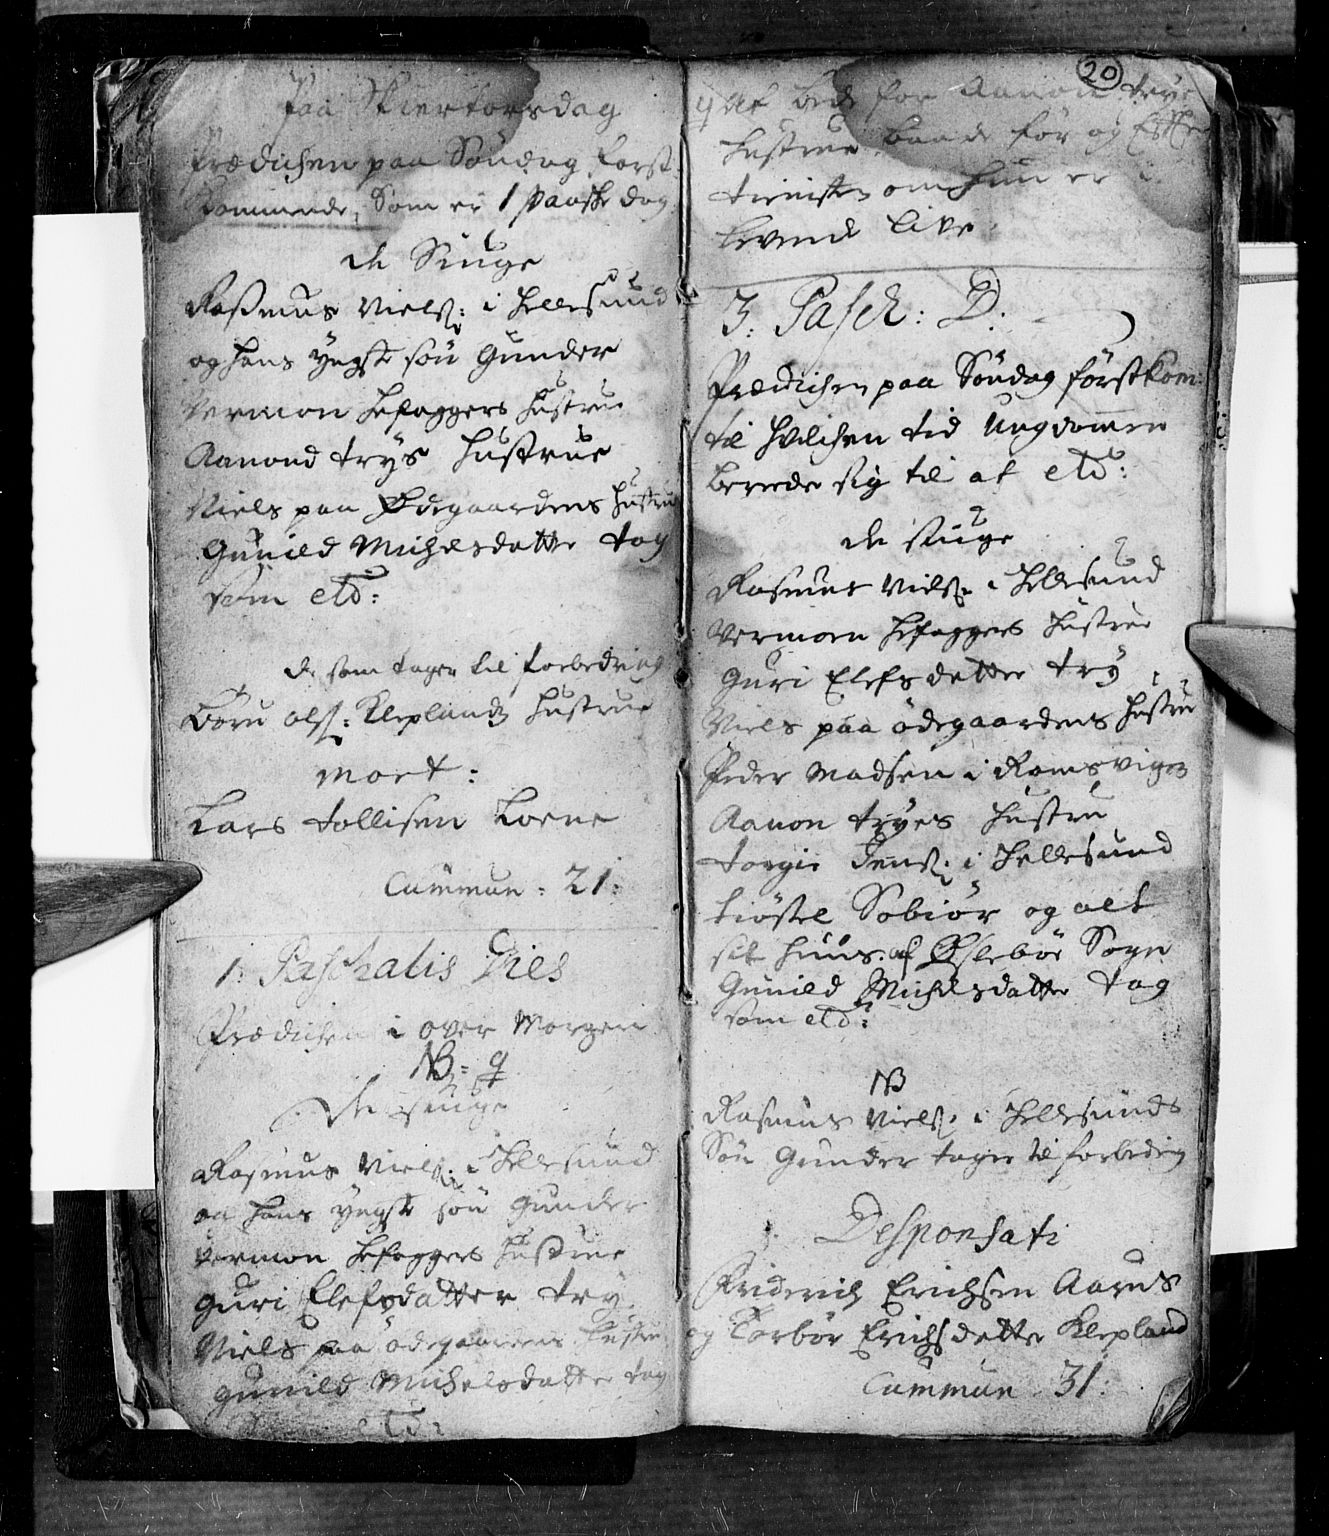 Paa Skiertorsdag
Prædichen paa Søndag først
kommende, Som er 1 Paasche dag
de Siuge
Rasmus Niels: i Hellesund
og hans yngste søn Gunder
Vermon Hefoggers Hustrue
Aanond Trys Hustrue
Niels paa Ødegaardens Hustrue
Gunild Michelsdatter Tag
som etc:
de som tager til forbedring
Børu Ols: Kleplands Hustrue
Mort:
Lars Tollisen Loene
Cummun: 21:
1: Paschalis Dies
Prædichen i over Morgen
NB: q
De siuge
Rasmus Niels: i Hellesund
og hans yngste søn Gunder
Vermon Hefoggers Hustrue
Guri Elefsdatter Try
Niels paa ødegaardens Hustru
Gunild Michelsdatter Tag
etc:
20
q At bede for Aanon Trye
Hustrue baade før og Efter
om hun er i
levende Live
3: Pasch: D:
Prædichen paa Søndag førstkom:
til hvilchen tid Ungdommen
berede sig til at etc:
de siuge
Rasmus Niels: i Hellesund
Vermoen Hefoggers Hustrue
Guri Elefsdatter Try
Niels paa ødegaardens Hustru
Peder Madsen i Ramsvigen
Aanon Tryes Hustru
Torgie Jens: i Hellesund
Kiøstel Søbiør og alt
sit Huus af Øslebøe Sogn
Gunild Michelsdatter Tag
som etc:
NB
Rasmus Niels: i Hellesunds
Søn Gunder tager til forbedring
Desponsati
Friderich Erichsen Aarus
og Torbør Erichsdatter Klepland
Cummun 31: